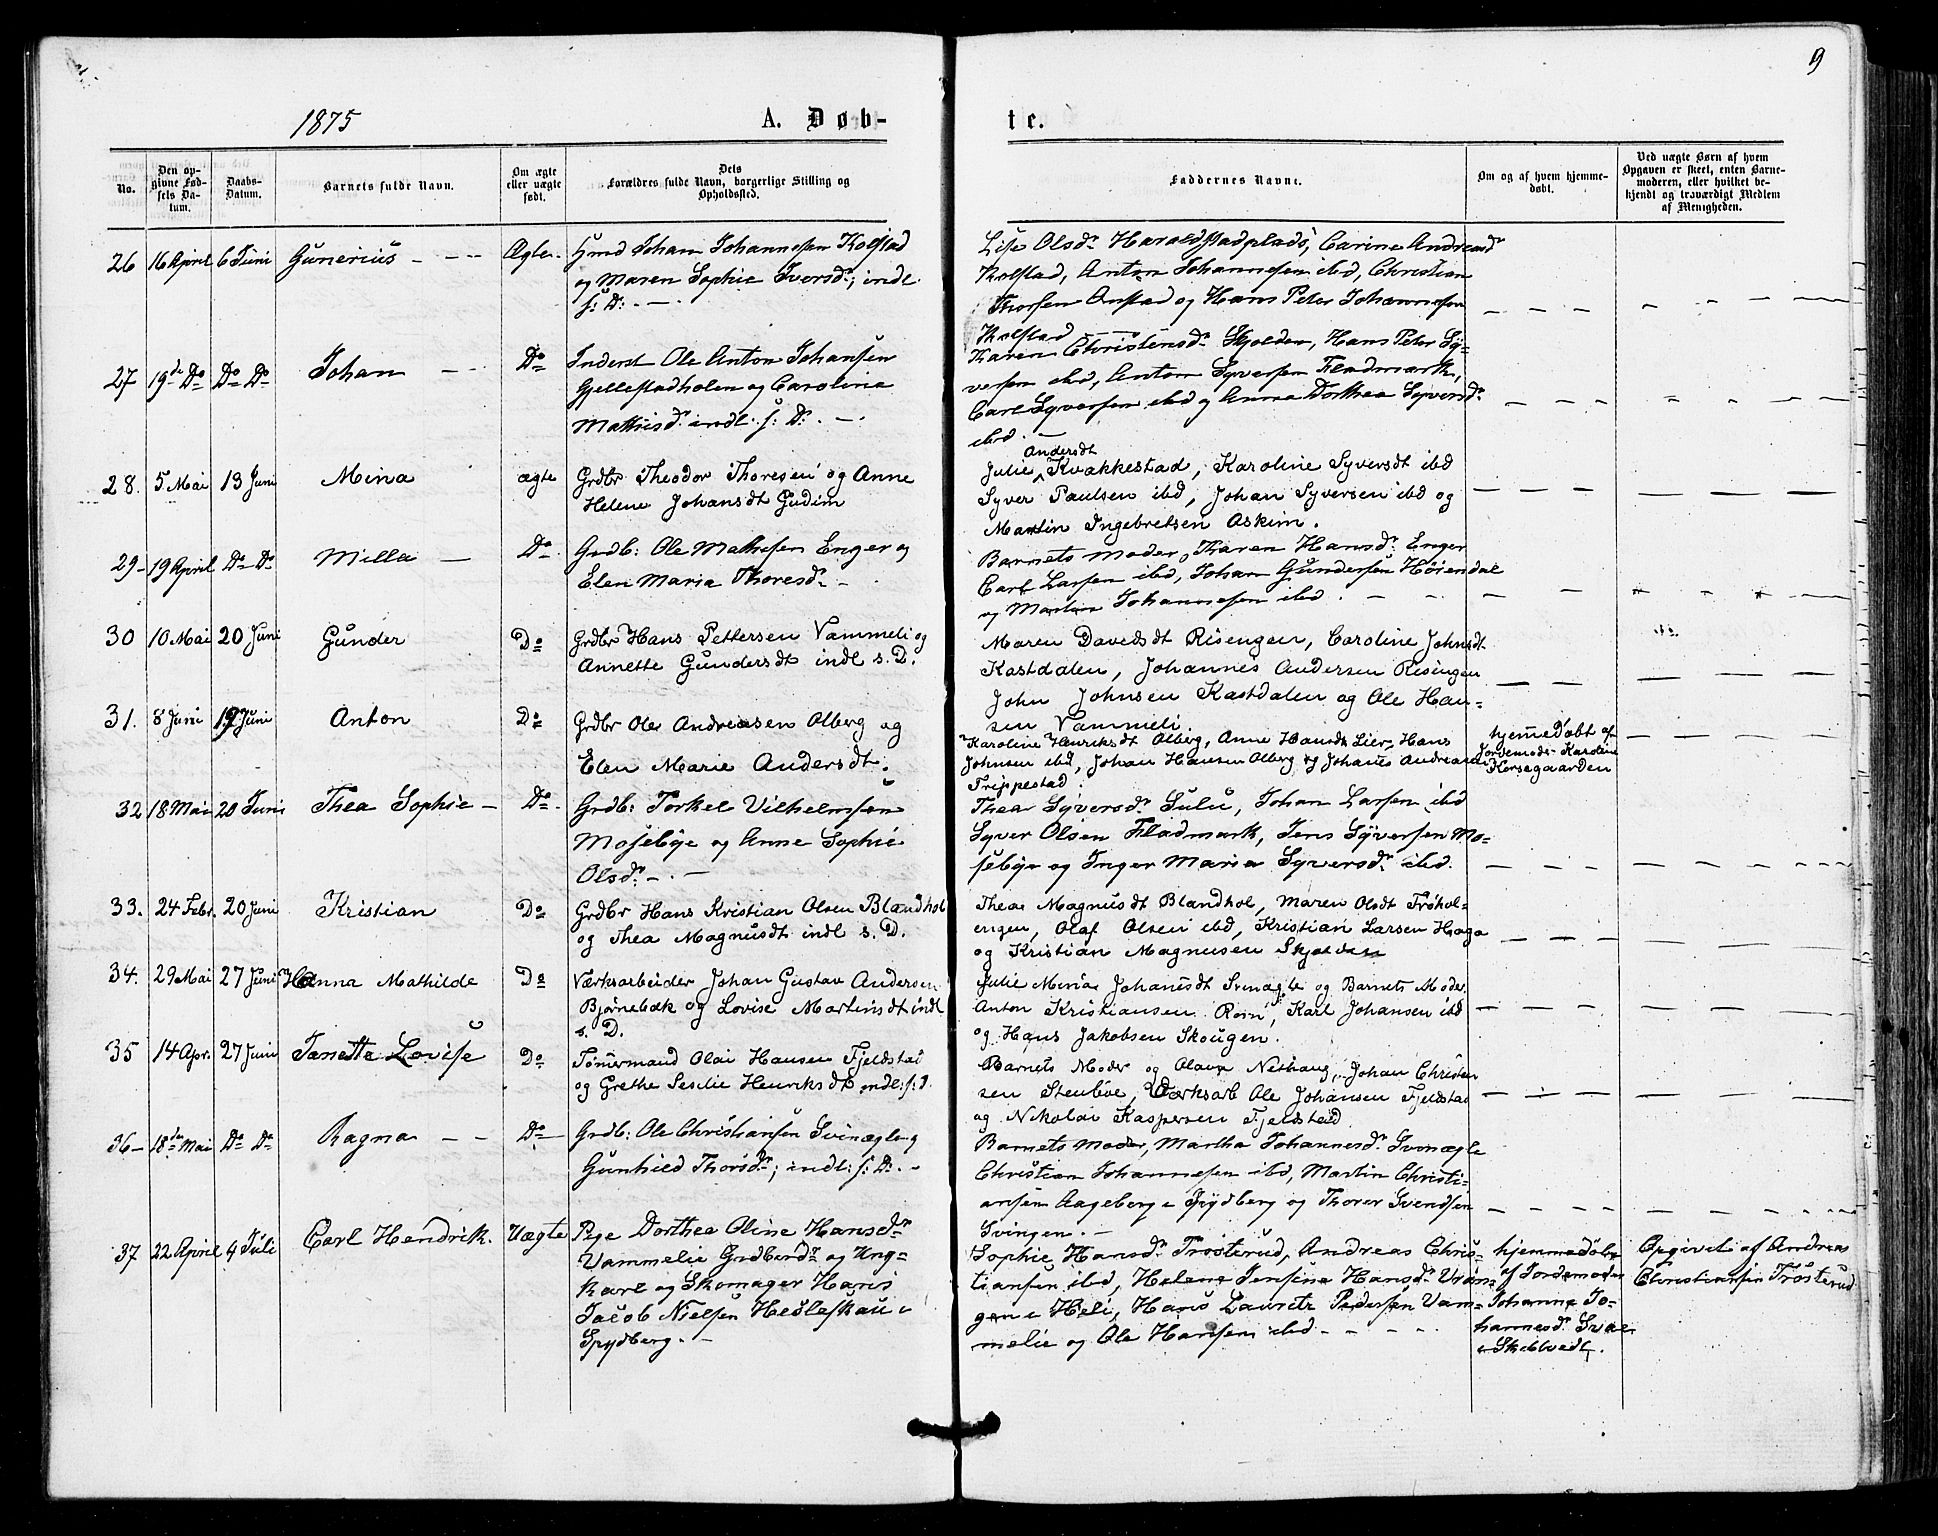 9
1875
A. Døb-
te.
No.
Den op-
givne Fød-
sels Da-
tum.
Daabs-
Datum.
Barnets fulde Navn.
Om ægte
eller uægte
født.
Dets
Forældres fulde Navn, borgerlige Stilling og
Opholdssted.
Faddernes Navne.
Om og af hvem hjemme-
døbt.
Ved uægte Børn af hvem
Opgaven er skeet, enten Barne-
moderen, eller hvilket be-
kjendt og troværdigt Medlem
af Menigheden.
26 16 April 6 Juni Gunerius - - - Ægte. Hmd Johan Johannesen Kolstad
og Maren Sophie Iversdr, indl.
s: D: . —
Lise Olsdr Haraldstadplads, Carine Andreasdr
Kolstad, Anton Johannesen ibd, Christian
Thorsen Onstad og Hans Peter Johannesen
Kolstad —
27 19de Do Do Do Johan - - Do Inderst Ole Anton Johansen
Gjellestadholen og Caroline
Mathisdr indl. s: D: . —
Karen Christensdr Skjolden, Hans Peter Sy-
versen ibd, Anton Syversen Fladmark,
Carl Syversen ibd og Anne Dorthea Syversdr
ibd. —
28. 5 Mai 13 Juni Mina ægte Grdbr Theodor Thoresen og Anne
Helene Johansdt Gudim
Andersdt
Julie Kvakkestad, Karoline Syversdt ibd
Syver Paulsen ibd, Johan Syversen ibd og
Martin Ingebretsen Askim.
29- 19 April Do Do Milla — Do Grdb: Ole Mathesen Enger og
Elen Maria Thoresdr -
Barnets moder, Karen Hansdr Enger
Carl Larsen ibd, Johan Gundersen Hørendal
og Martin Johannesen ibd. - - -
30 10 Mai 20 Juni Gunder Do Grdbr Hans Pettersen Vammeli og
Annette Gundersdt indl s. D.
Maren Davedsdt Risengen, Caroline Johnsdt
Kastdalen, Johannes Andersen Risengen
John Johnsen Kastdalen og Ole Han-
sen Vammeli
31. 8 Juni 19 Juni Anton Do Grdbr Ole Andreasen Olberg og
Elen Marie Andersdt.
Karoline Henriksdt Olberg, Anne Hansdt Lier, Hans
Johnsen ibd, Johan Hansen Olberg og Johanes Andreasen
Trippestad.
hjemmedøbt af
Jordemods Karoline
Korsegaarden
32 18 Mai 20 Juni Thea Sophie - Do Grdb: Torkel Vilhelmsen
Mosebye og Anne Sophie
Olsdr - . —
Thea Syversdr Sulu, Johan Larsen ibd
Syver Olsen Fladmark, Jens Syversen Mo-
sebye og Inger Maria Syversdr ibd.
33. 24 Febr. 20 Juni Kristian Do Grdbr Hans Kristian Olsen Blandhol
og Thea Magnusdt indl s. D.
Thea Magnusdt Blandhol, Maren Olsdt Frøkol-
engen, Olaf Olsen ibd, Kristian Larsen Haga
og Kristian Magnusen Skjolden
34. 29 Mai 27 Juni Hanna Mathilde Do Værksarbeider Johan Gustav Andersen
Bjørnebæk og Lovise Martinsdt indl
s. D.
Julie Maria Johanesdt Svenægle og Barnets Moder
Anton Kristiansen Roin, Karl Johansen ibd
og Hans Jakobsen Skougen.
35 14 Apr. 27 Juni Janette Lovise Do Tømermand Olai Hansen Fjeldstad
og Grethe Sesilie Henriksdt indl: s: D.
Barnets Moder og Olava Nethaug, Johan Christen
sen Stenbøe, Værksarb Ole Johansen Fjeldstad
og Nikolai Kaspersen Fjeldstad
36- 18de Mai Do Do Ragna - - Do Grdb: Ole Christiansen Svinægle og
Gunhild Thorsdr; indl: s: D: . -
Barnets moder, Martha Johannesdr Svenægle
Christian Johannesen ibd, Martin Christi-
ansen Aageberg i Spydberg og Thorer Svendsen
Svingen. —
37 22 April 4 Juli Carl Hendrik. Uægte Pige Dorthea Oline Hansdr
Vammelie Grdbrdr og Ung-
karl og Skomager Hans
Jacob Nielsen Heslaskau i
Spydberg. —
Sophie Hansdr Trøsterud, Andreas Chris-
tiansen ibd, Helene Jensine Hansdr Vran-
gen i Heli, Hans Lauretz Pedersen Vam-
melie og Ole Hansen ibd - - -
hjemmedøbt
af Jordemoder
Johanne Jo-
hannesdr Svae
i Skibtvedt.
Opgivet af Andreas
Christiansen Trøsterud